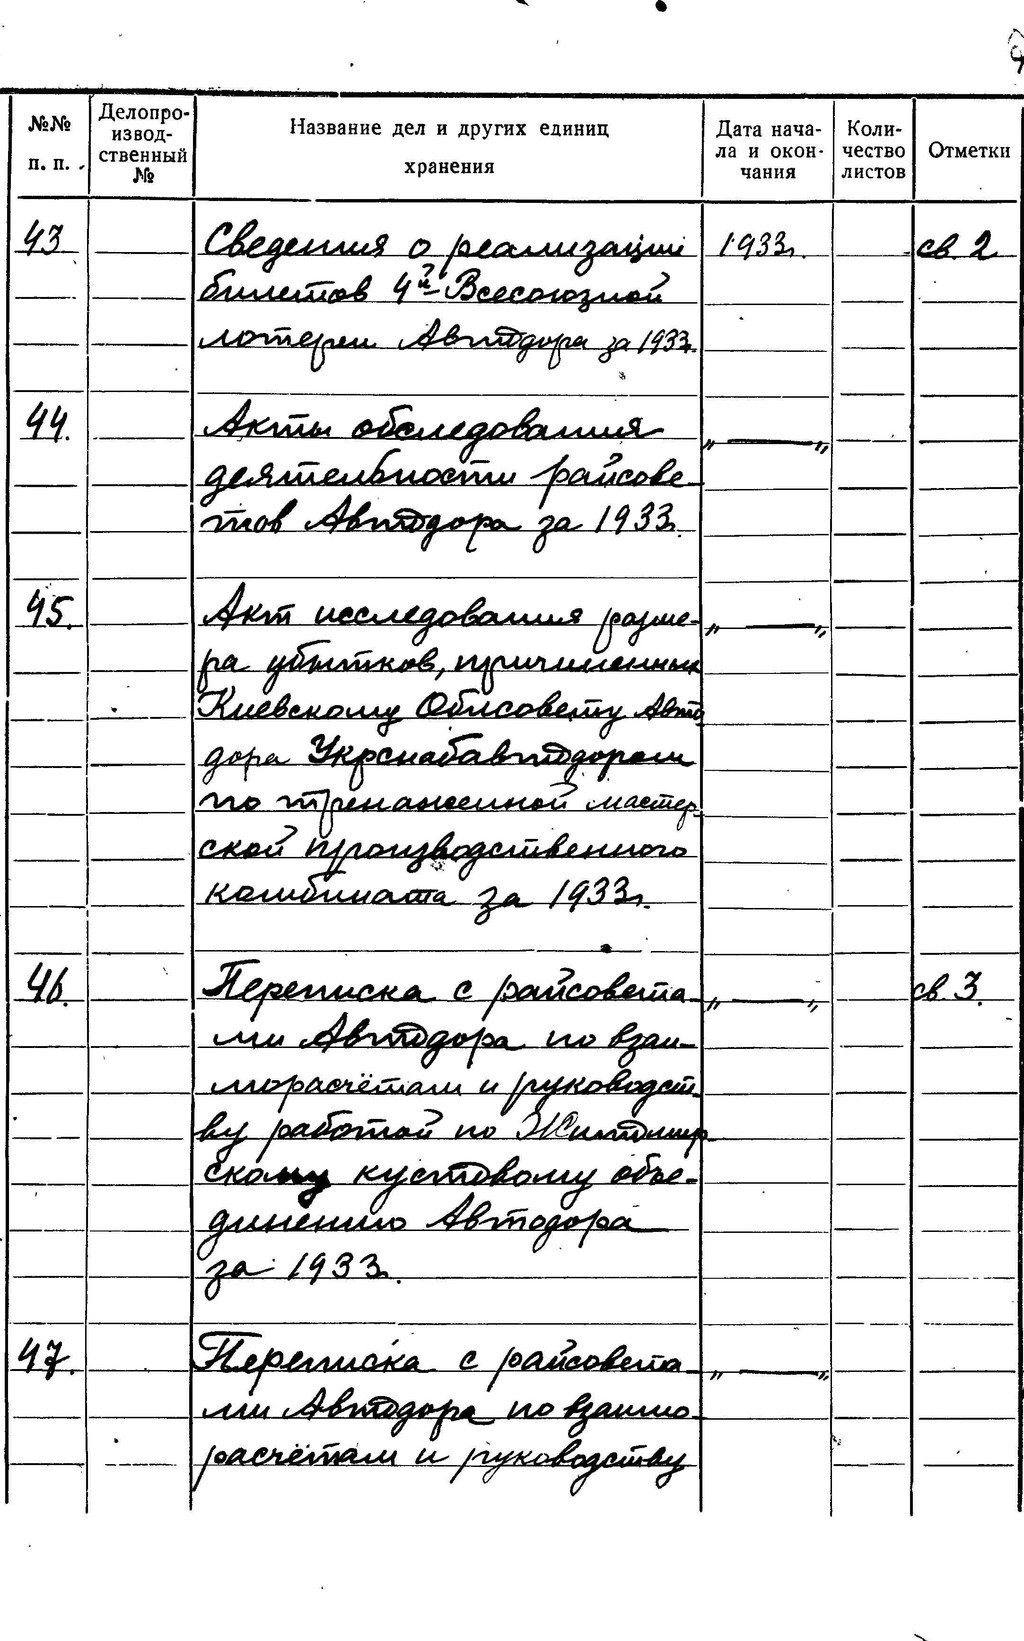 №№ п. п. Делопроизводственный № Название дел и других единиц хранения Дата начала и окончания Количество листов Отметки
43 Сведения о реализации 1933г. св. 2
билетов 4й Всесоюзной
лотереи Автодора за 1933г.
44. Акты обследования „ — „
деятельности райсове-
тов Автодора за 1933г.
45. Акт исследования разме- „ — „
ра убытков, причиненных
Киевскому Облсовету Авто
дора Укрснабавтодором
по тренаженной мастер
ской производственного
комбината за 1933г.
46. Переписка с райсовета- „ — „ св. 3.
ми Автодора по взаи-
морасчётам и руководст
ву работой по Житомир
скому кустовому объе-
динению Автодора
за 1933г.
47. Переписка с райсовета- „ — „
ми Автодора по взаимо
расчётам и руководству